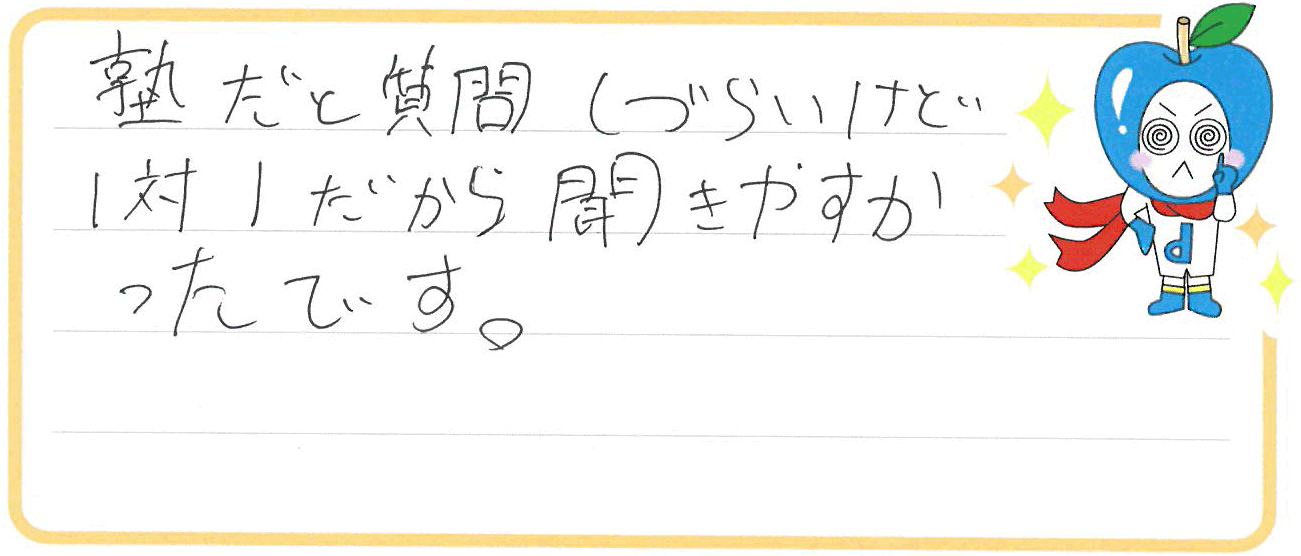 塾だと質問しづらいけど
1対1だから聞きやすか
ったです。
d